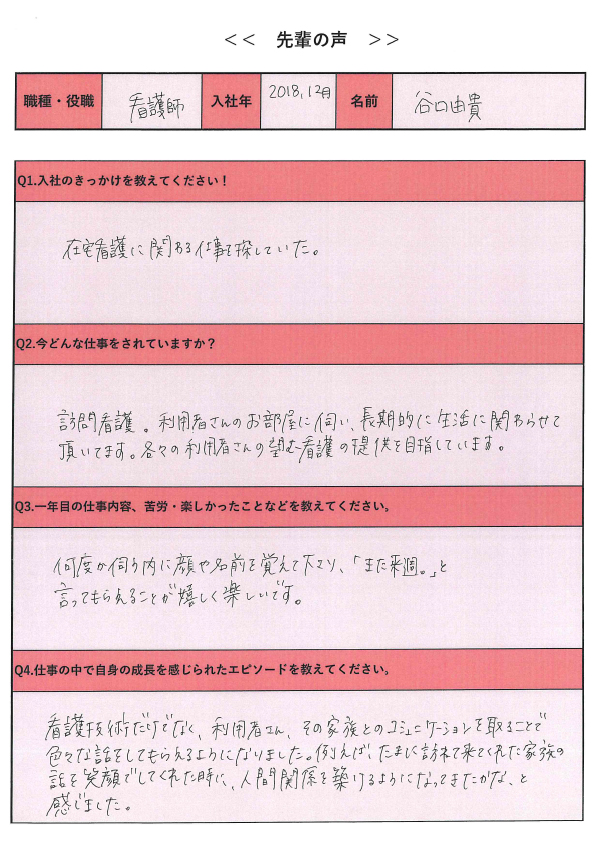 << 先輩の声 >>
職種・役職 看護師 入社年 2018,12月 名前 谷口由貴
Q1.入社のきっかけを教えてください！
在宅看護に関わる仕事を探していた。
Q2.今どんな仕事をされていますか？
訪問看護。利用者さんのお部屋に伺い、長期的に生活に関わらせて
頂いてます。各々の利用者さんの望む看護の提供を目指しています。
Q3.一年目の仕事内容、苦労・楽しかったことなどを教えてください。
何度か伺う内に顔や名前を覚えて下さり、「また来週。」と
言ってもらえることが嬉しく楽しいです。
Q4.仕事の中で自身の成長を感じられたエピソードを教えてください。
看護技術だけでなく、利用者さん、その家族とのコミュニケーションを取ることで
色々な話をしてもらえるようになりました。例えば、たまに訪れて来てくれた家族の
話を笑顔でしてくれた時に、人間関係を築けるようになってきたかな、と
感じました。